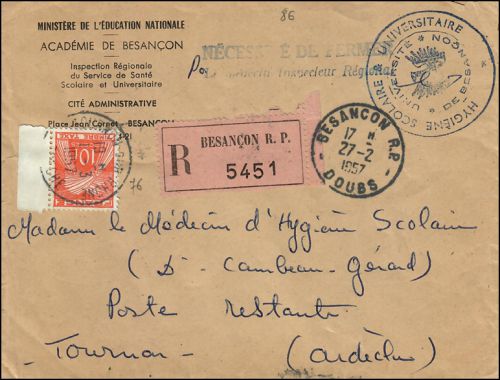 86
MINISTÈRE DE L'ÉDUCATION NATIONALE
ACADÉMIE DE BESANÇON
Inspection Régionale
du Service de Santé
Scolaire et Universitaire
CITÉ ADMINISTRATIVE
Place Jean Cornet - BESANÇON
NÉCESSITÉ DE FERMETURE
Le Médecin Inspecteur Régional
HYGIÈNE SCOLAIRE & UNIVERSITAIRE
UNIVERSITÉ DE BESANÇON
R
BESANÇON R. P.
5451
BESANÇON R.P.
17 H
27-2
1957
DOUBS
76
Madame le Médecin d'Hygiène Scolaire
(Dr Cambeau-Gérard)
Poste restante
Tournon - (Ardèche)